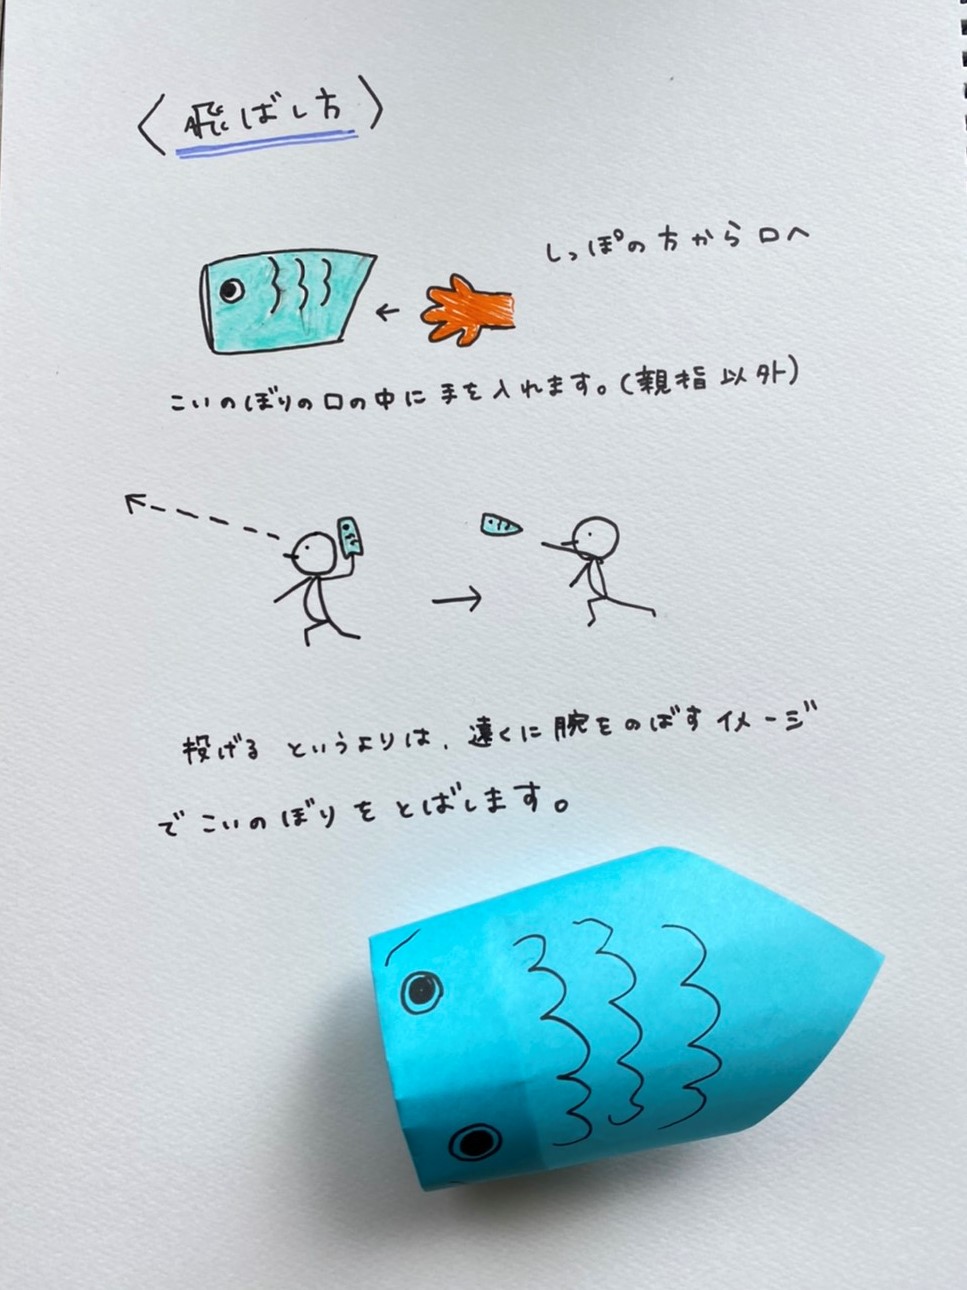 〈飛ばし方〉
しっぽの方から口へ
こいのぼりの口の中に手を入れます。(親指以外)
投げるというよりは、遠くに腕をのばすイメージ
でこいのぼりをとばします。